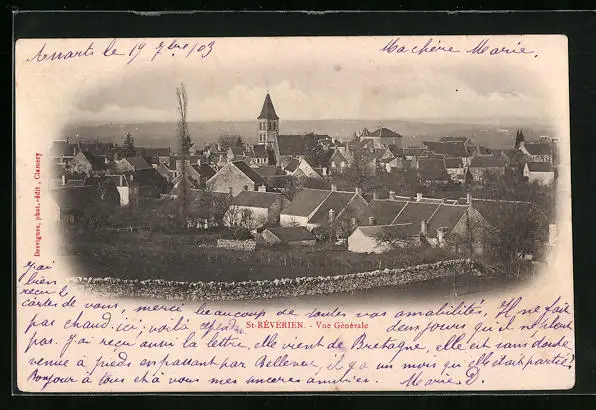 Assarts le 19 7bre 03
Ma chère Marie,
Desvignes, phot.-édit., Clamecy
J'ai
bien
reçu 2
cartes de vous, merci beaucoup de toutes vos amabilités. Il ne fait
St-RÉVÉRIEN. - Vue Générale
pas chaud ici, voilà cependant deux jours qu'il ne pleut
pas. J'ai reçu aussi la lettre, elle vient de Bretagne, elle est sans doute
venue à pieds en passant par Bellevue, il y a un mois qu'elle était partie
Bonjour à tous et à vous mes sincères amitiés. Marie D.